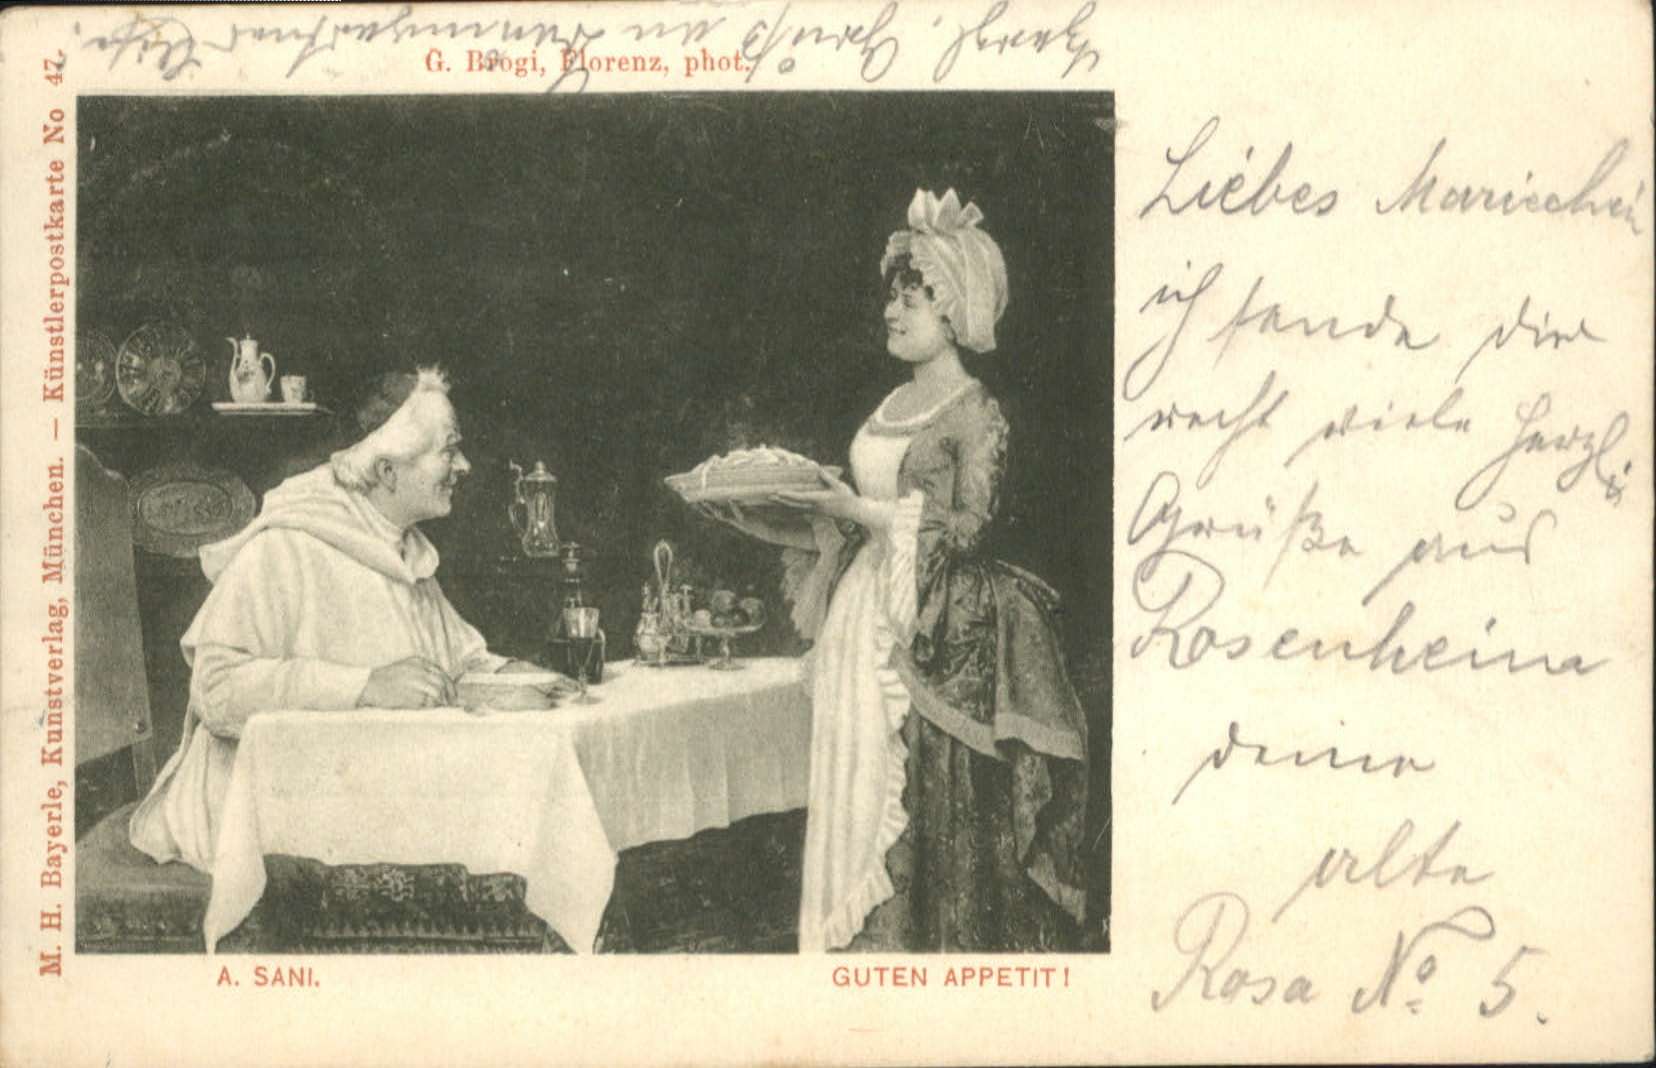 G. Brogi, Florenz, phot.
M. H. Bayerle, Kunstverlag, München. — Künstlerpostkarte No 47.
Liebes Mariechen
ich sende dir
recht viele herzl.
Grüße aus
Rosenheim
deine
alte
Rosa No. 5.
A. SANI.
GUTEN APPETIT!
Herzl. Gruß an